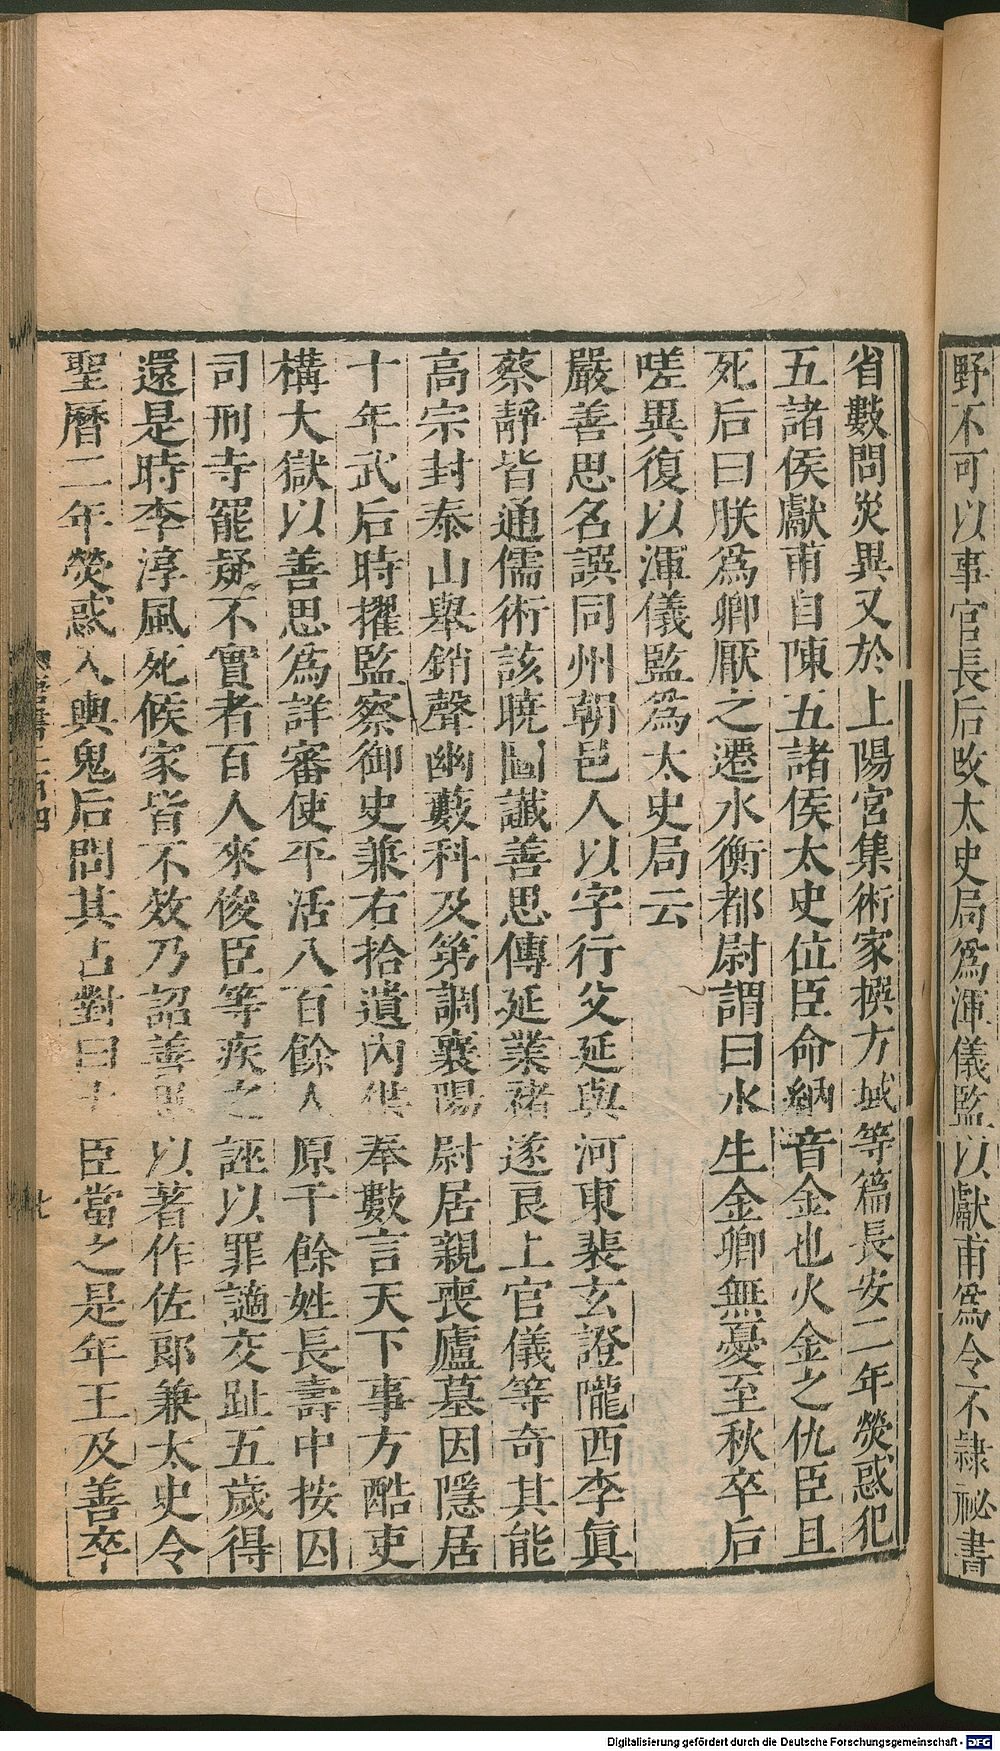 野不可以事官長后改太史局爲渾儀監以獻甫爲令不隷祕書
省數問災異又於上陽宮集術家撰方域等篇長安二年熒惑犯
五諸侯獻甫自陳五諸侯太史位臣命納音金也火金之仇臣且
死后曰朕爲卿厭之遷水衡都尉謂曰水生金卿無憂至秋卒后
嗟異復以渾儀監爲太史局云
嚴善思名譔同州朝邑人以字行父延與河東裴玄證隴西李眞
蔡靜皆通儒術該曉圖讖善思傳延業褚遂良上官儀等奇其能
高宗封泰山舉銷聲幽藪科及第調襄陽尉居親喪廬墓因隱居
十年武后時擢監察御史兼右拾遺內供奉數言天下事方酷吏
構大獄以善思爲詳審使平活八百餘人原千餘姓長壽中按囚
司刑寺罷疑不實者百人來俊臣等疾之誣以罪謫交趾五歲得
還是時李淳風死候家皆不效乃詔善思以著作佐郎兼太史令
聖曆二年熒惑入輿鬼后問其占對曰大臣當之是年王及善卒
唐書二百四
七
Digitalisierung gefördert durch die Deutsche Forschungsgemeinschaft - DFG